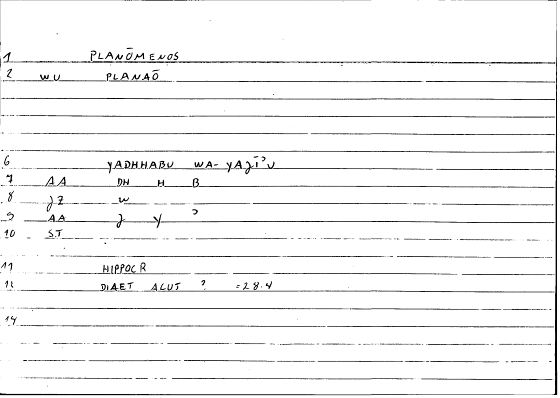 1 PLANŌMENOS
2 WU PLANAŌ
6 YADHHABU WA- YAJĪʾU
7 AA DH H B
8 JZ W
9 AA J Y ʾ
10 S.T
11 HIPPOCR
12 DIAET ACUT ? =28.4
14